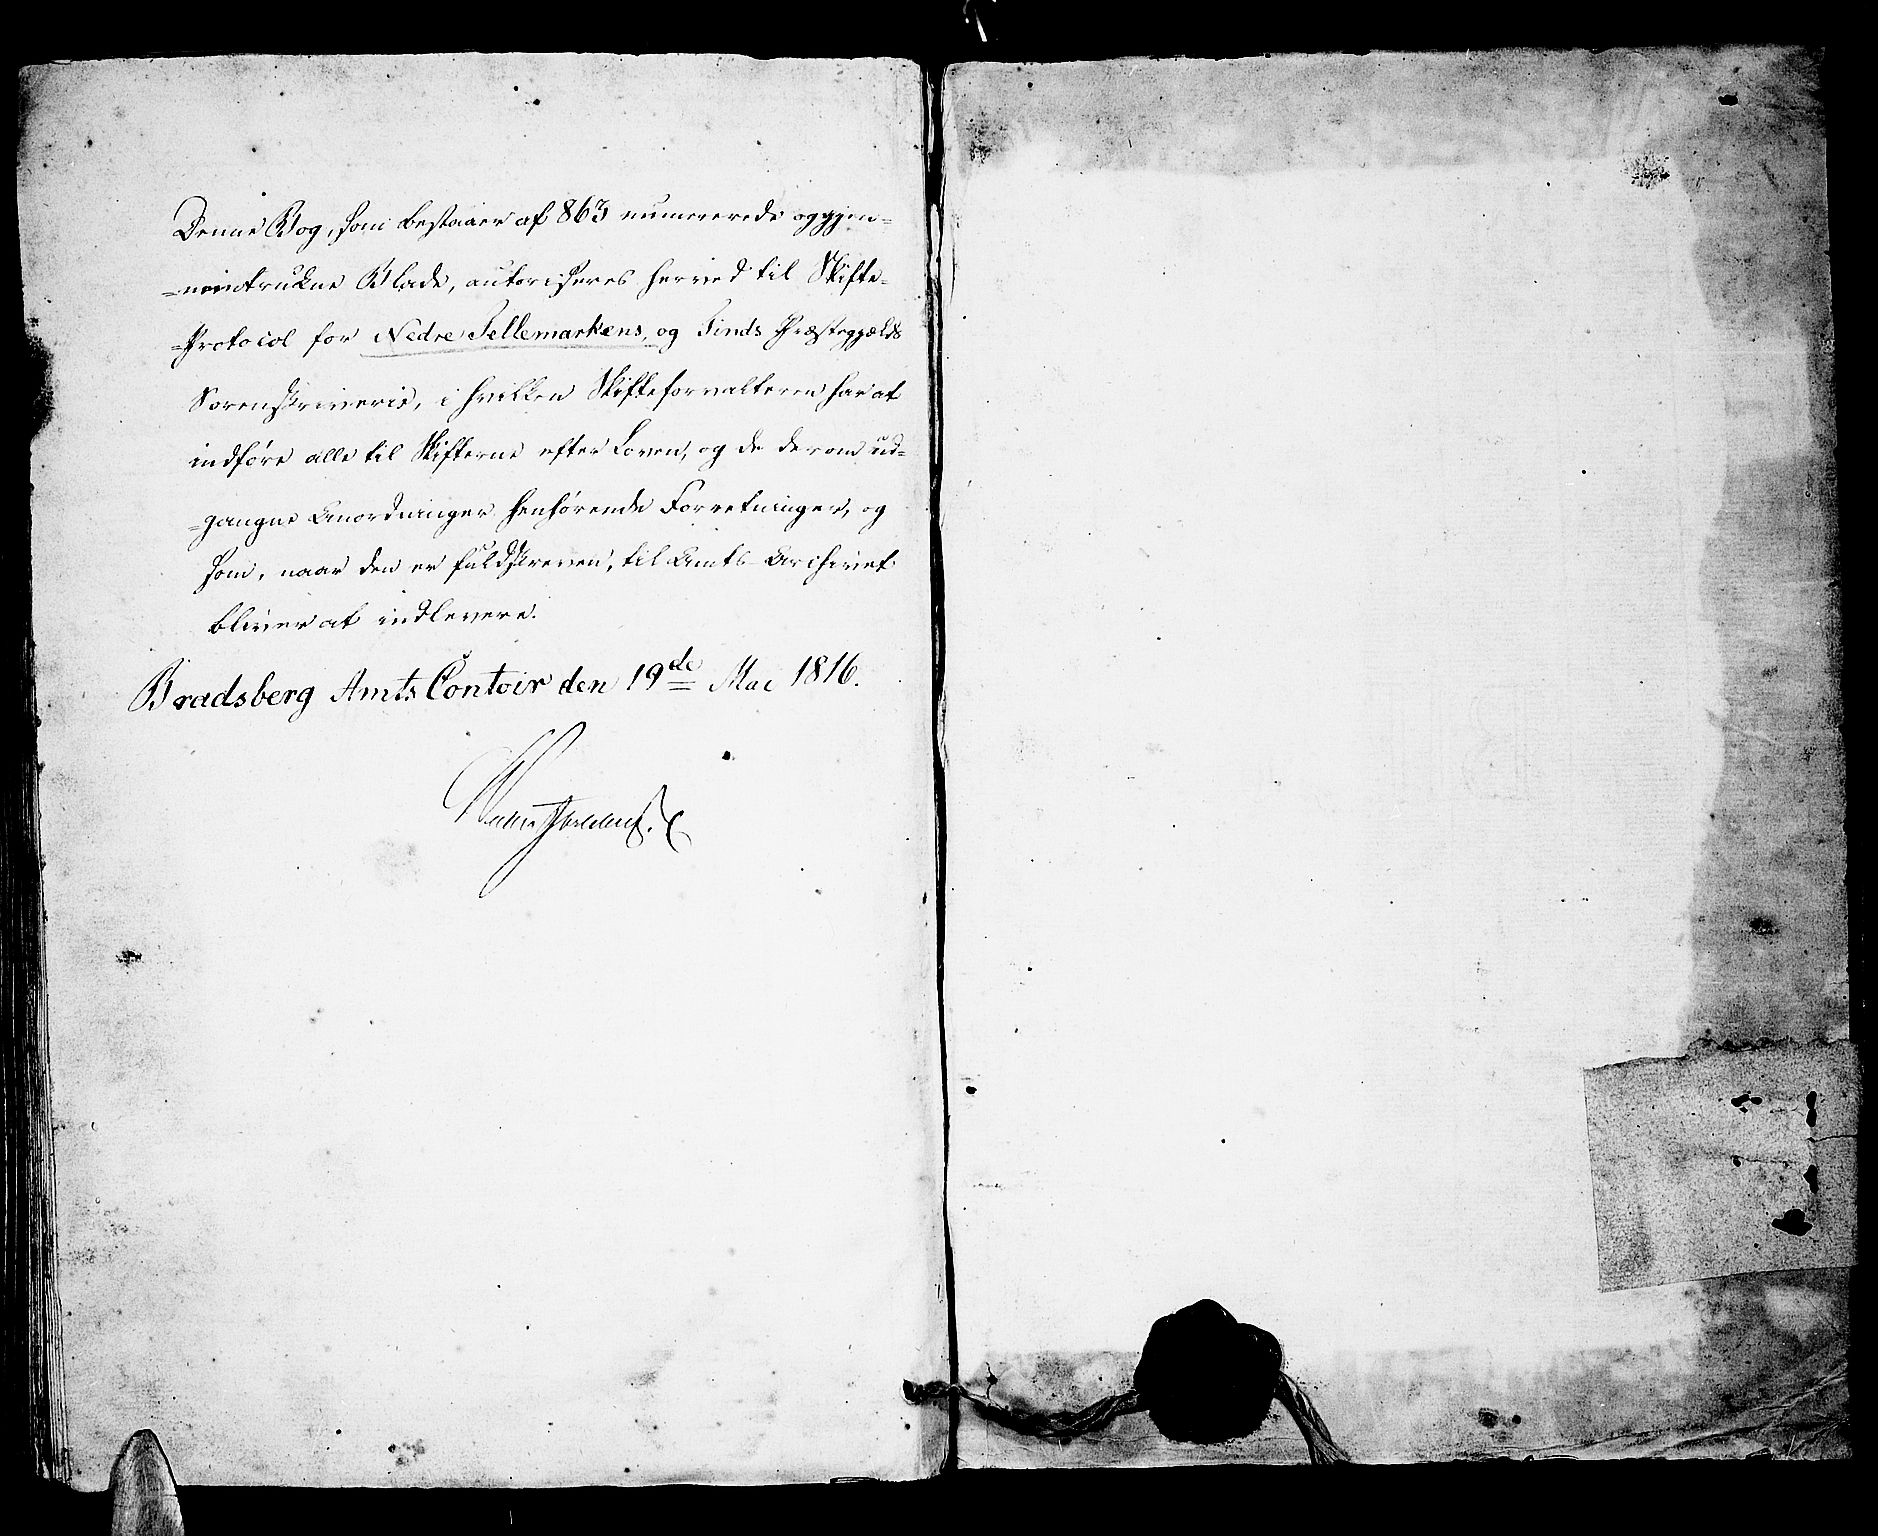 Denne Bog, som bestaaer af 863 numererede og gjen=
=nemtrukne Blade, autoriseres herved til Skifte=
=Protocol for Nedre Tellemarkens, og Tinds Præstegjælds
Sorenskriverie, i hvilken Skifteforvalteren har at
indføre alle til Skifterne efter Loven, og de derom ud=
=gangne Anordninger henhørende Forretninger, og
som, naar den er fuldskreven, til Amts-Archivet
bliver at indlevere.
Bradsberg Amts Contoir den 19de Mai 1816.